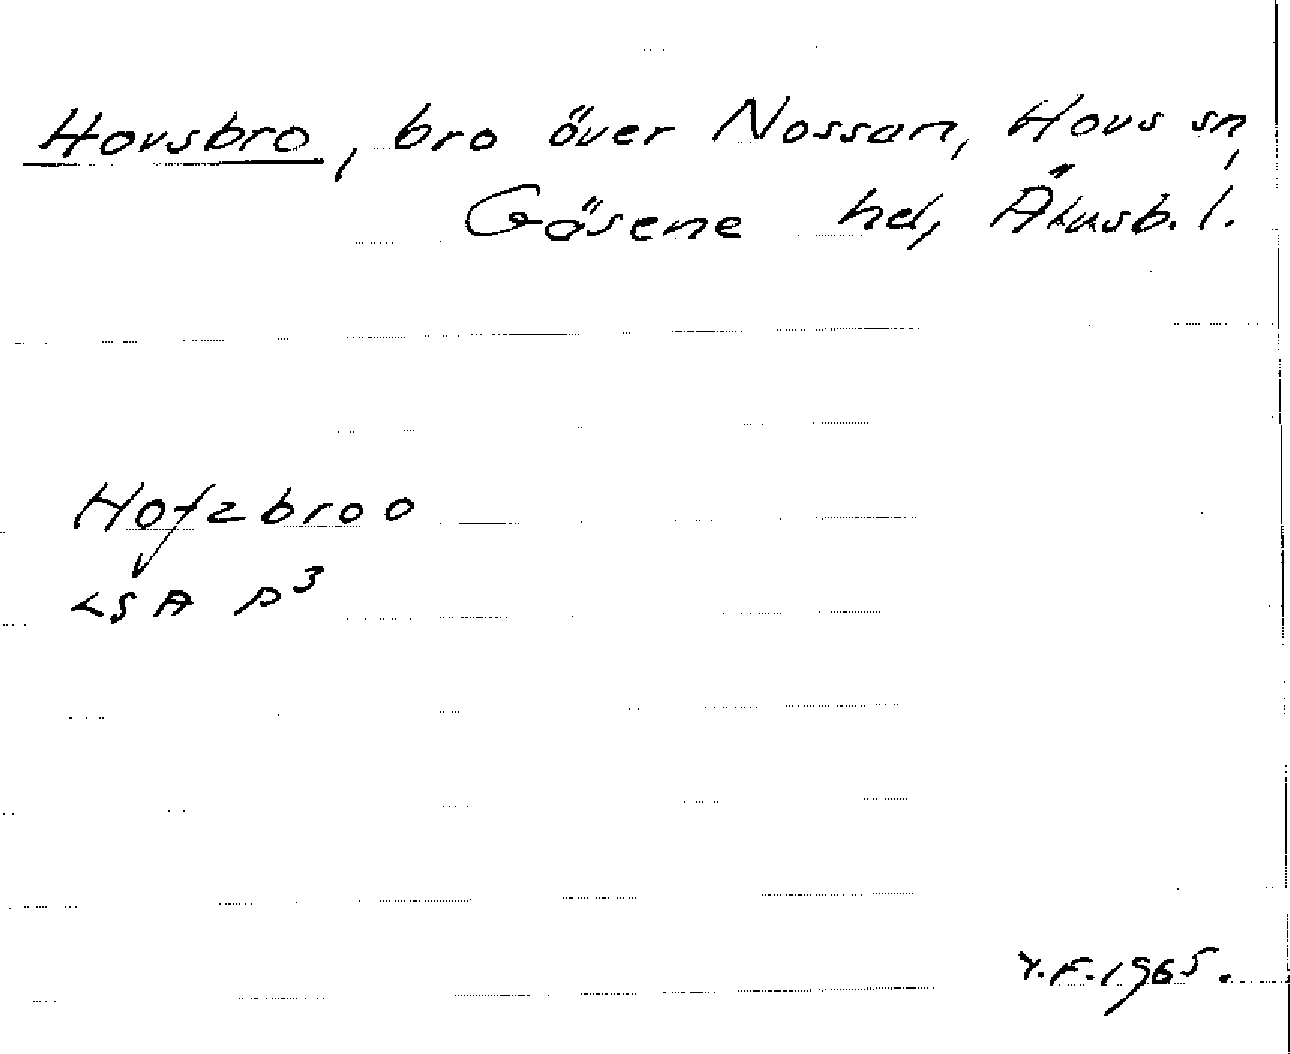 Hovsbro, bro över Nossan, Hovs sn,
Gäsene hd, Älvsb. l.
Hofzbroo
LSA P3
Y.F. 1965.